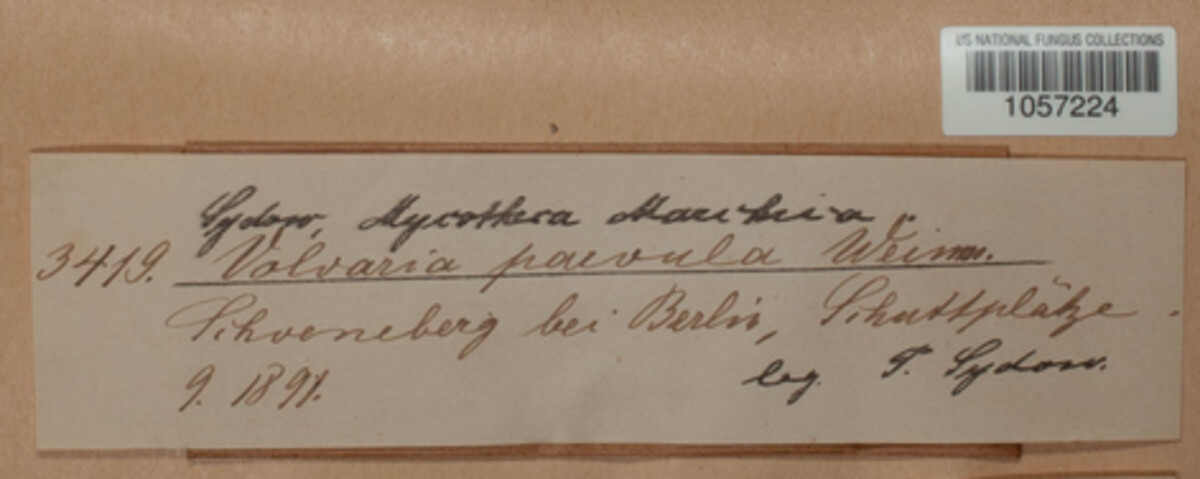 US NATIONAL FUNGUS COLLECTIONS
1057224
Sydow, Mycotheca Marchica.
3419. Volvaria parvula Weinm.
Schoeneberg bei Berlin, Schuttplätze.
9. 1891.
leg. P. Sydow.